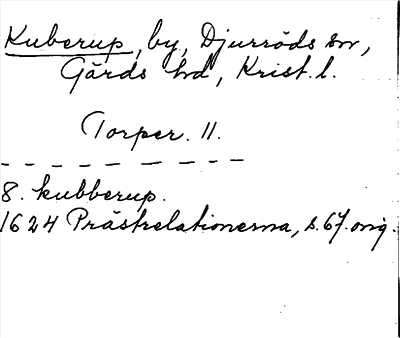 Kuberup, by, Djurröds sn,
Gärds hd, Krist. l.
Torper. 11.
8. kubberup.
1624 Prästrelationerna, s. 67. orig.